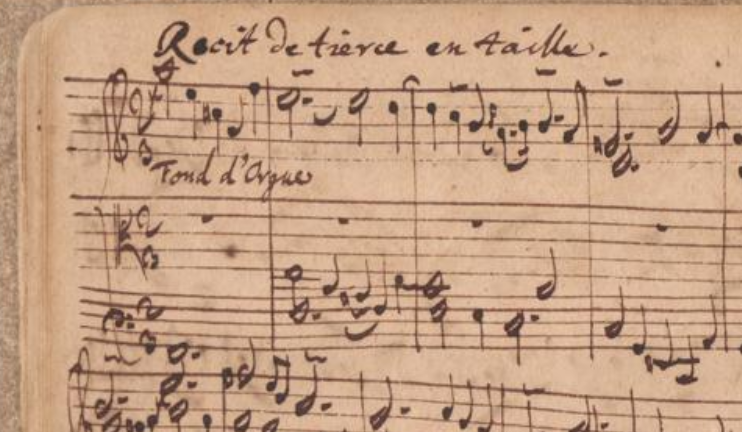 Recit de tierce en taille.
Fond d'Orgue